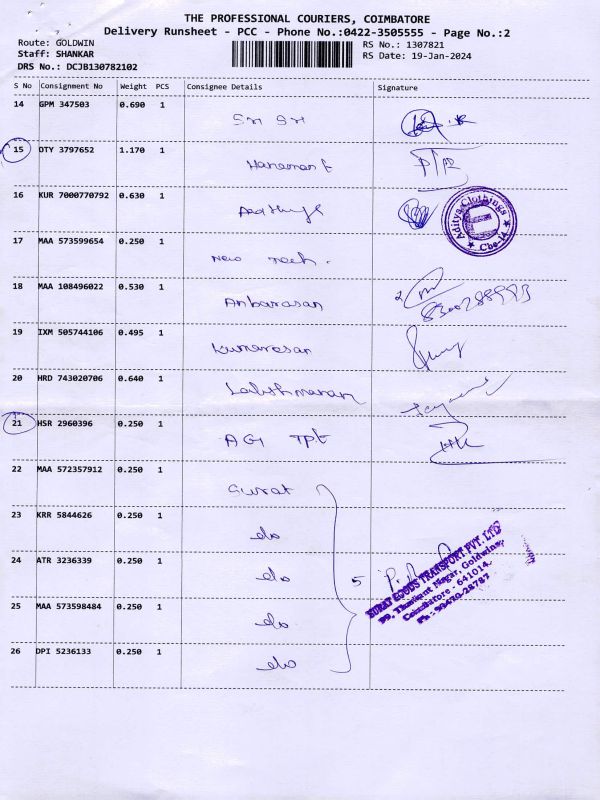 THE PROFESSIONAL COURIERS, COIMBATORE
Delivery Runsheet - PCC - Phone No.:0422-3505555 - Page No.:2
Route: GOLDWIN
Staff: SHANKAR
DRS No.: DCJB130782102
RS No.: 1307821
RS Date: 19-Jan-2024
S No Consignment No Weight PCS Consignee Details Signature
14 GPM 347503 0.690 1 Sri Sri
15 DTY 3797652 1.170 1
16 KUR 7000770792 0.630 1
Aditya Clothings
★ Cbe-14 ★
17 MAA 573599654 0.250 1 New Tech.
18 MAA 108496022 0.530 1 Anbarasan
19 IXM 505744106 0.495 1 Kumaresan
20 HRD 743020706 0.640 1 Lakshmanan
21 HSR 2960396 0.250 1 AGI TPt
22 MAA 572357912 0.250 1 Surat
23 KRR 5844626 0.250 1 do
24 ATR 3236339 0.250 1 do 5
25 MAA 573598484 0.250 1 do
26 DPI 5236133 0.250 1 do
SURAT GOODS TRANSPORT PVT. LTD
Nagar, Goldwins,
Coimbatore - 641014.